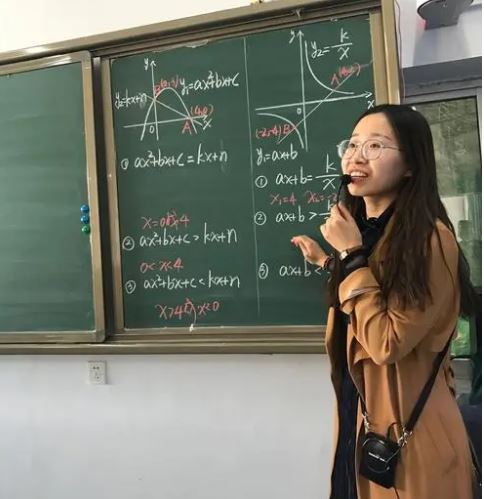 y
B(0,3) y₁=ax²+bx+c
y₂=kx+n
(4,0)
0
A
x
① ax²+bx+c=kx+n
x=0或4
② ax²+bx+c>kx+n
0<x<4
③ ax²+bx+c<kx+n
x>4或x<0
y
y₂=k/x
A
x
0
(-2,-4)B
y₁=ax+b
① ax+b=k/x
x₁=4 x₂=
② ax+b>
③ ax+b<